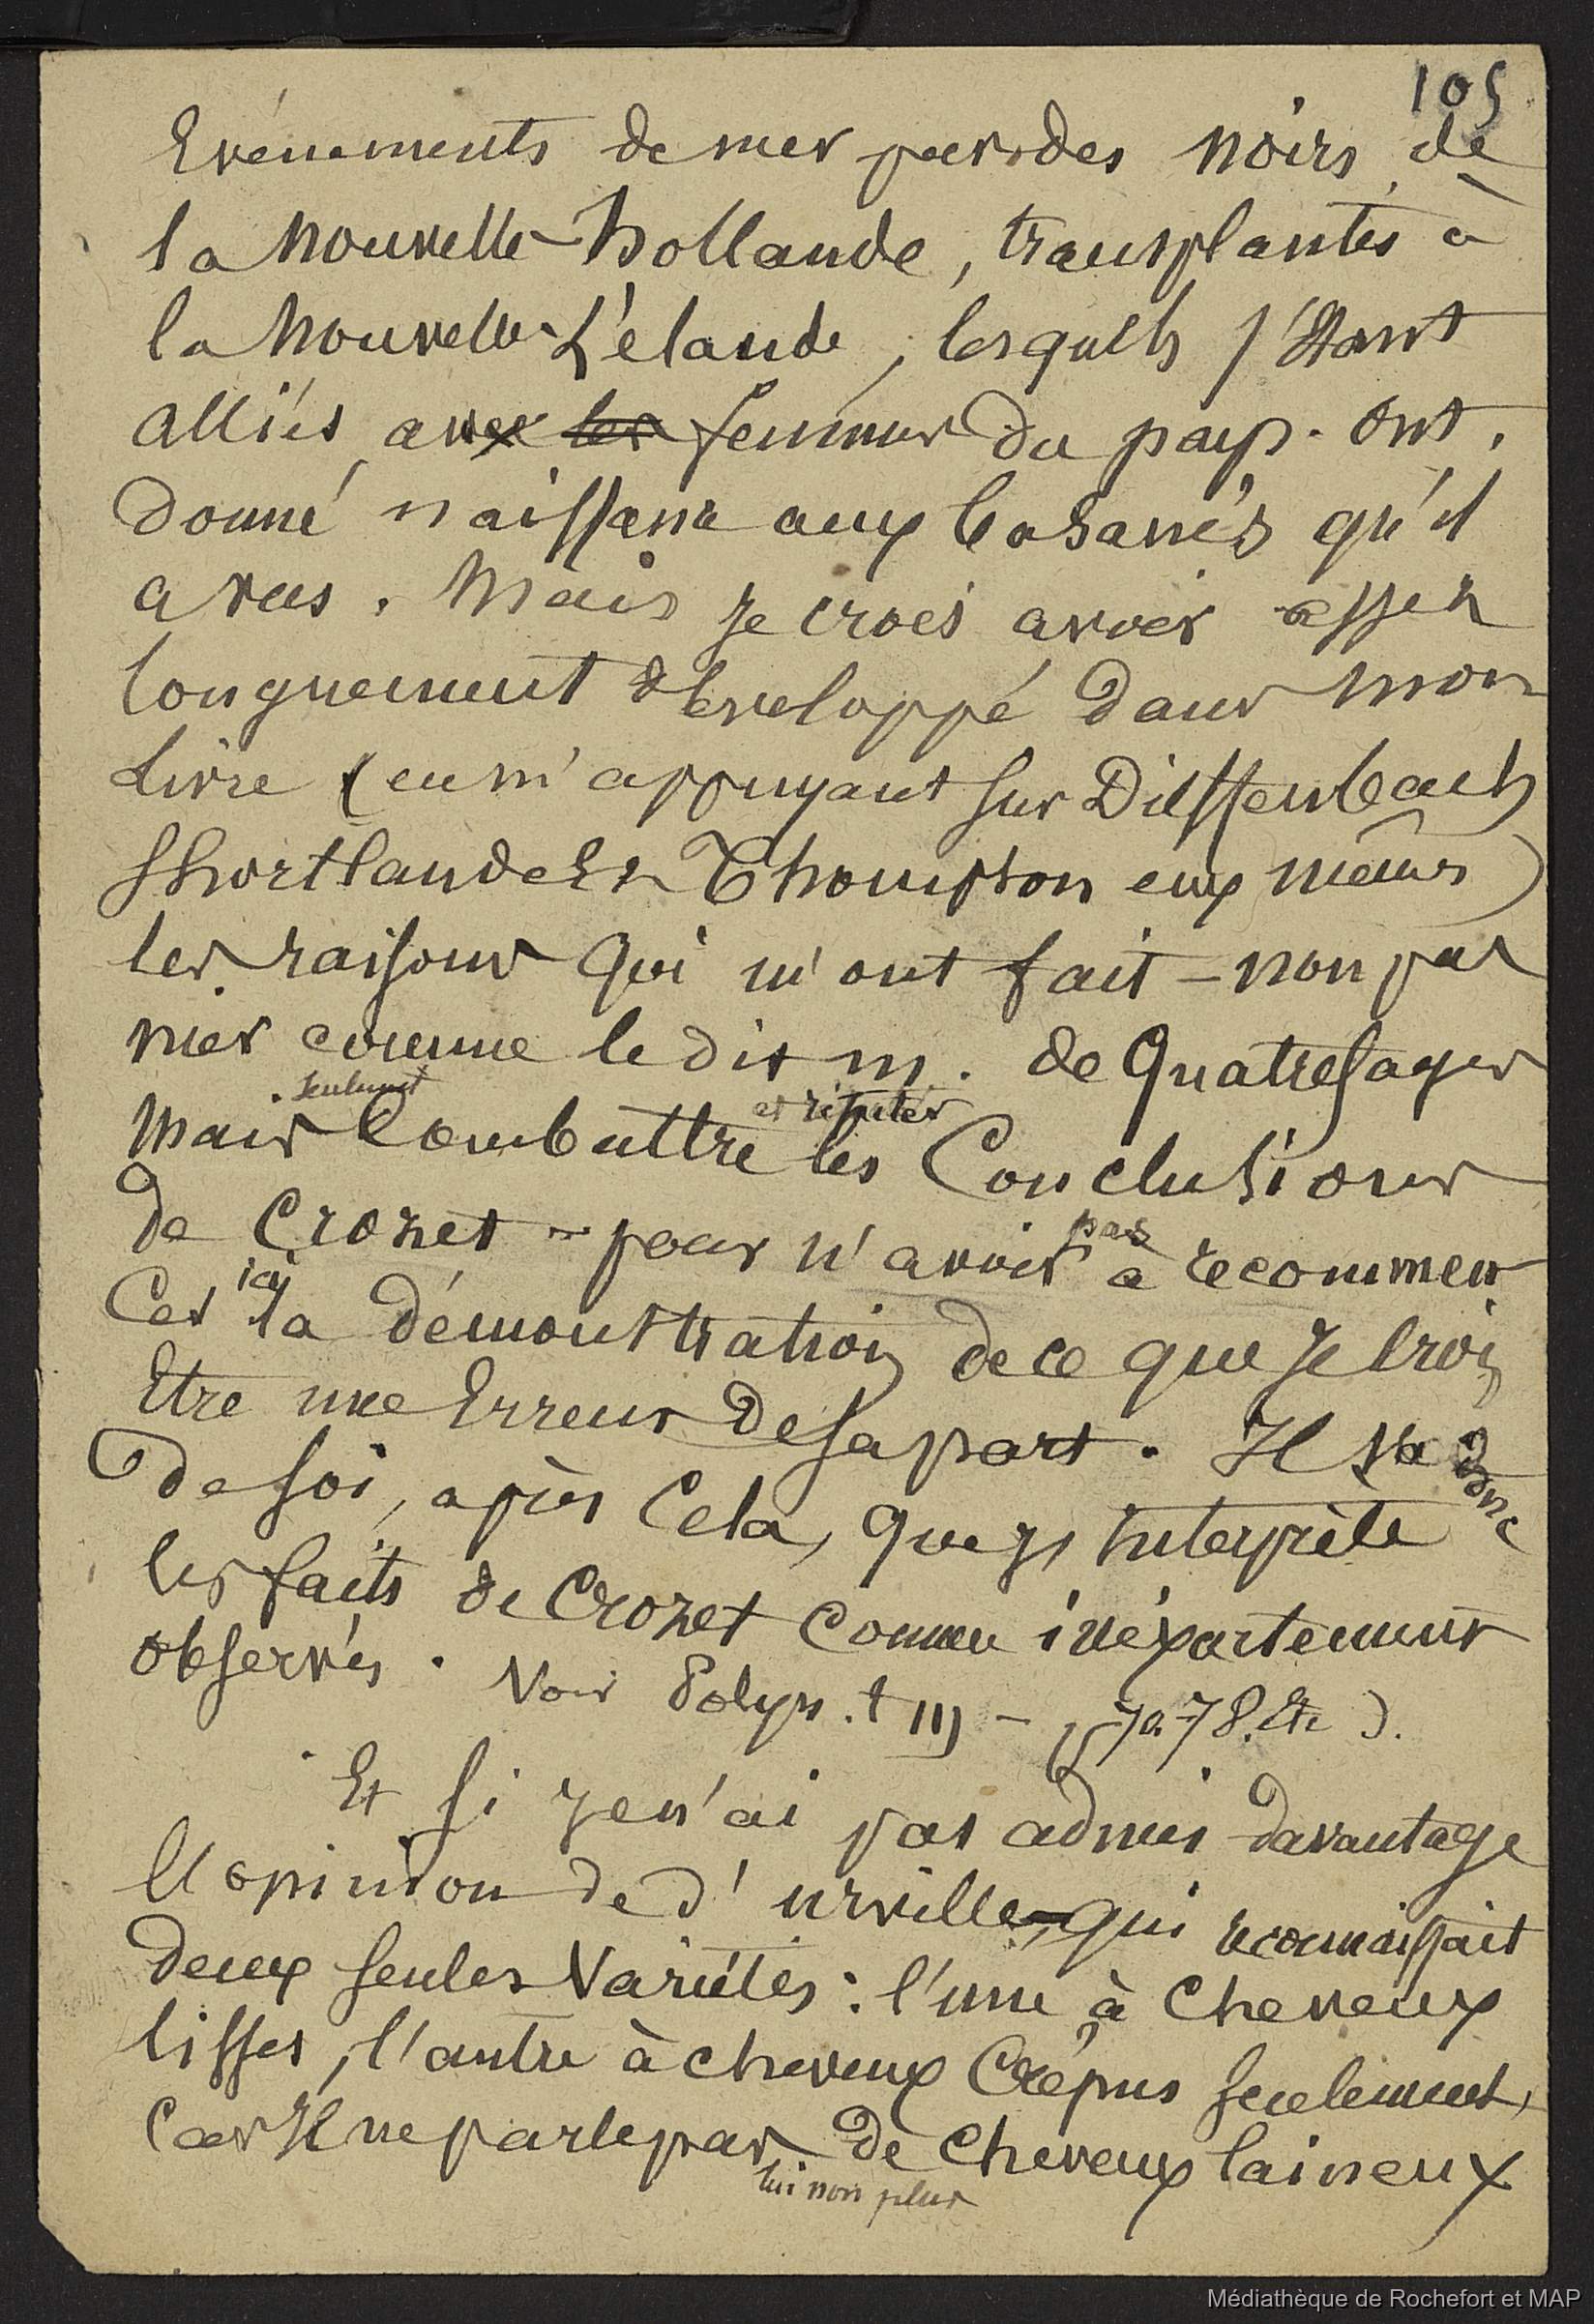 105
Evénements de mer par des noirs de
la Nouvelle-hollande, transplantés à
la Nouvelle-Zélande, lesquels s'étant
alliés aux les femmes du pays. ont
donné naissance aux basanés qu'il
a vus. Mais je crois avoir assez
longuement developpé dans mon
Livre (en m'appuyant sur Dieffenbach
Shortland et Thompson eux mêmes)
les raisons qui m'ont fait - non pas
nier comme le dit m. de Quatrefages
seulement et réfuter
Mais Combattre les Conclusions
de Crozet - pour n'avoir pas à recommen
Cer ici la démonstration de ce que je crois
Etre une Erreur de sa part. Il va donc
de soi, après Cela, que je interprète
les faits de Crozet comme inéxactement
observés. Voir Polyn. t III - p 70.78. Etc ).
Et si je n'ai pas admis davantage
l'opinion de d'urville, qui reconnaissait
deux seules Variétés : l'une à Cheveux
lisses, l'autre à cheveux Crépus seulement,
Car Il ne parle pas de Cheveux laineux
lui non plus
Médiathèque de Rochefort et MAP